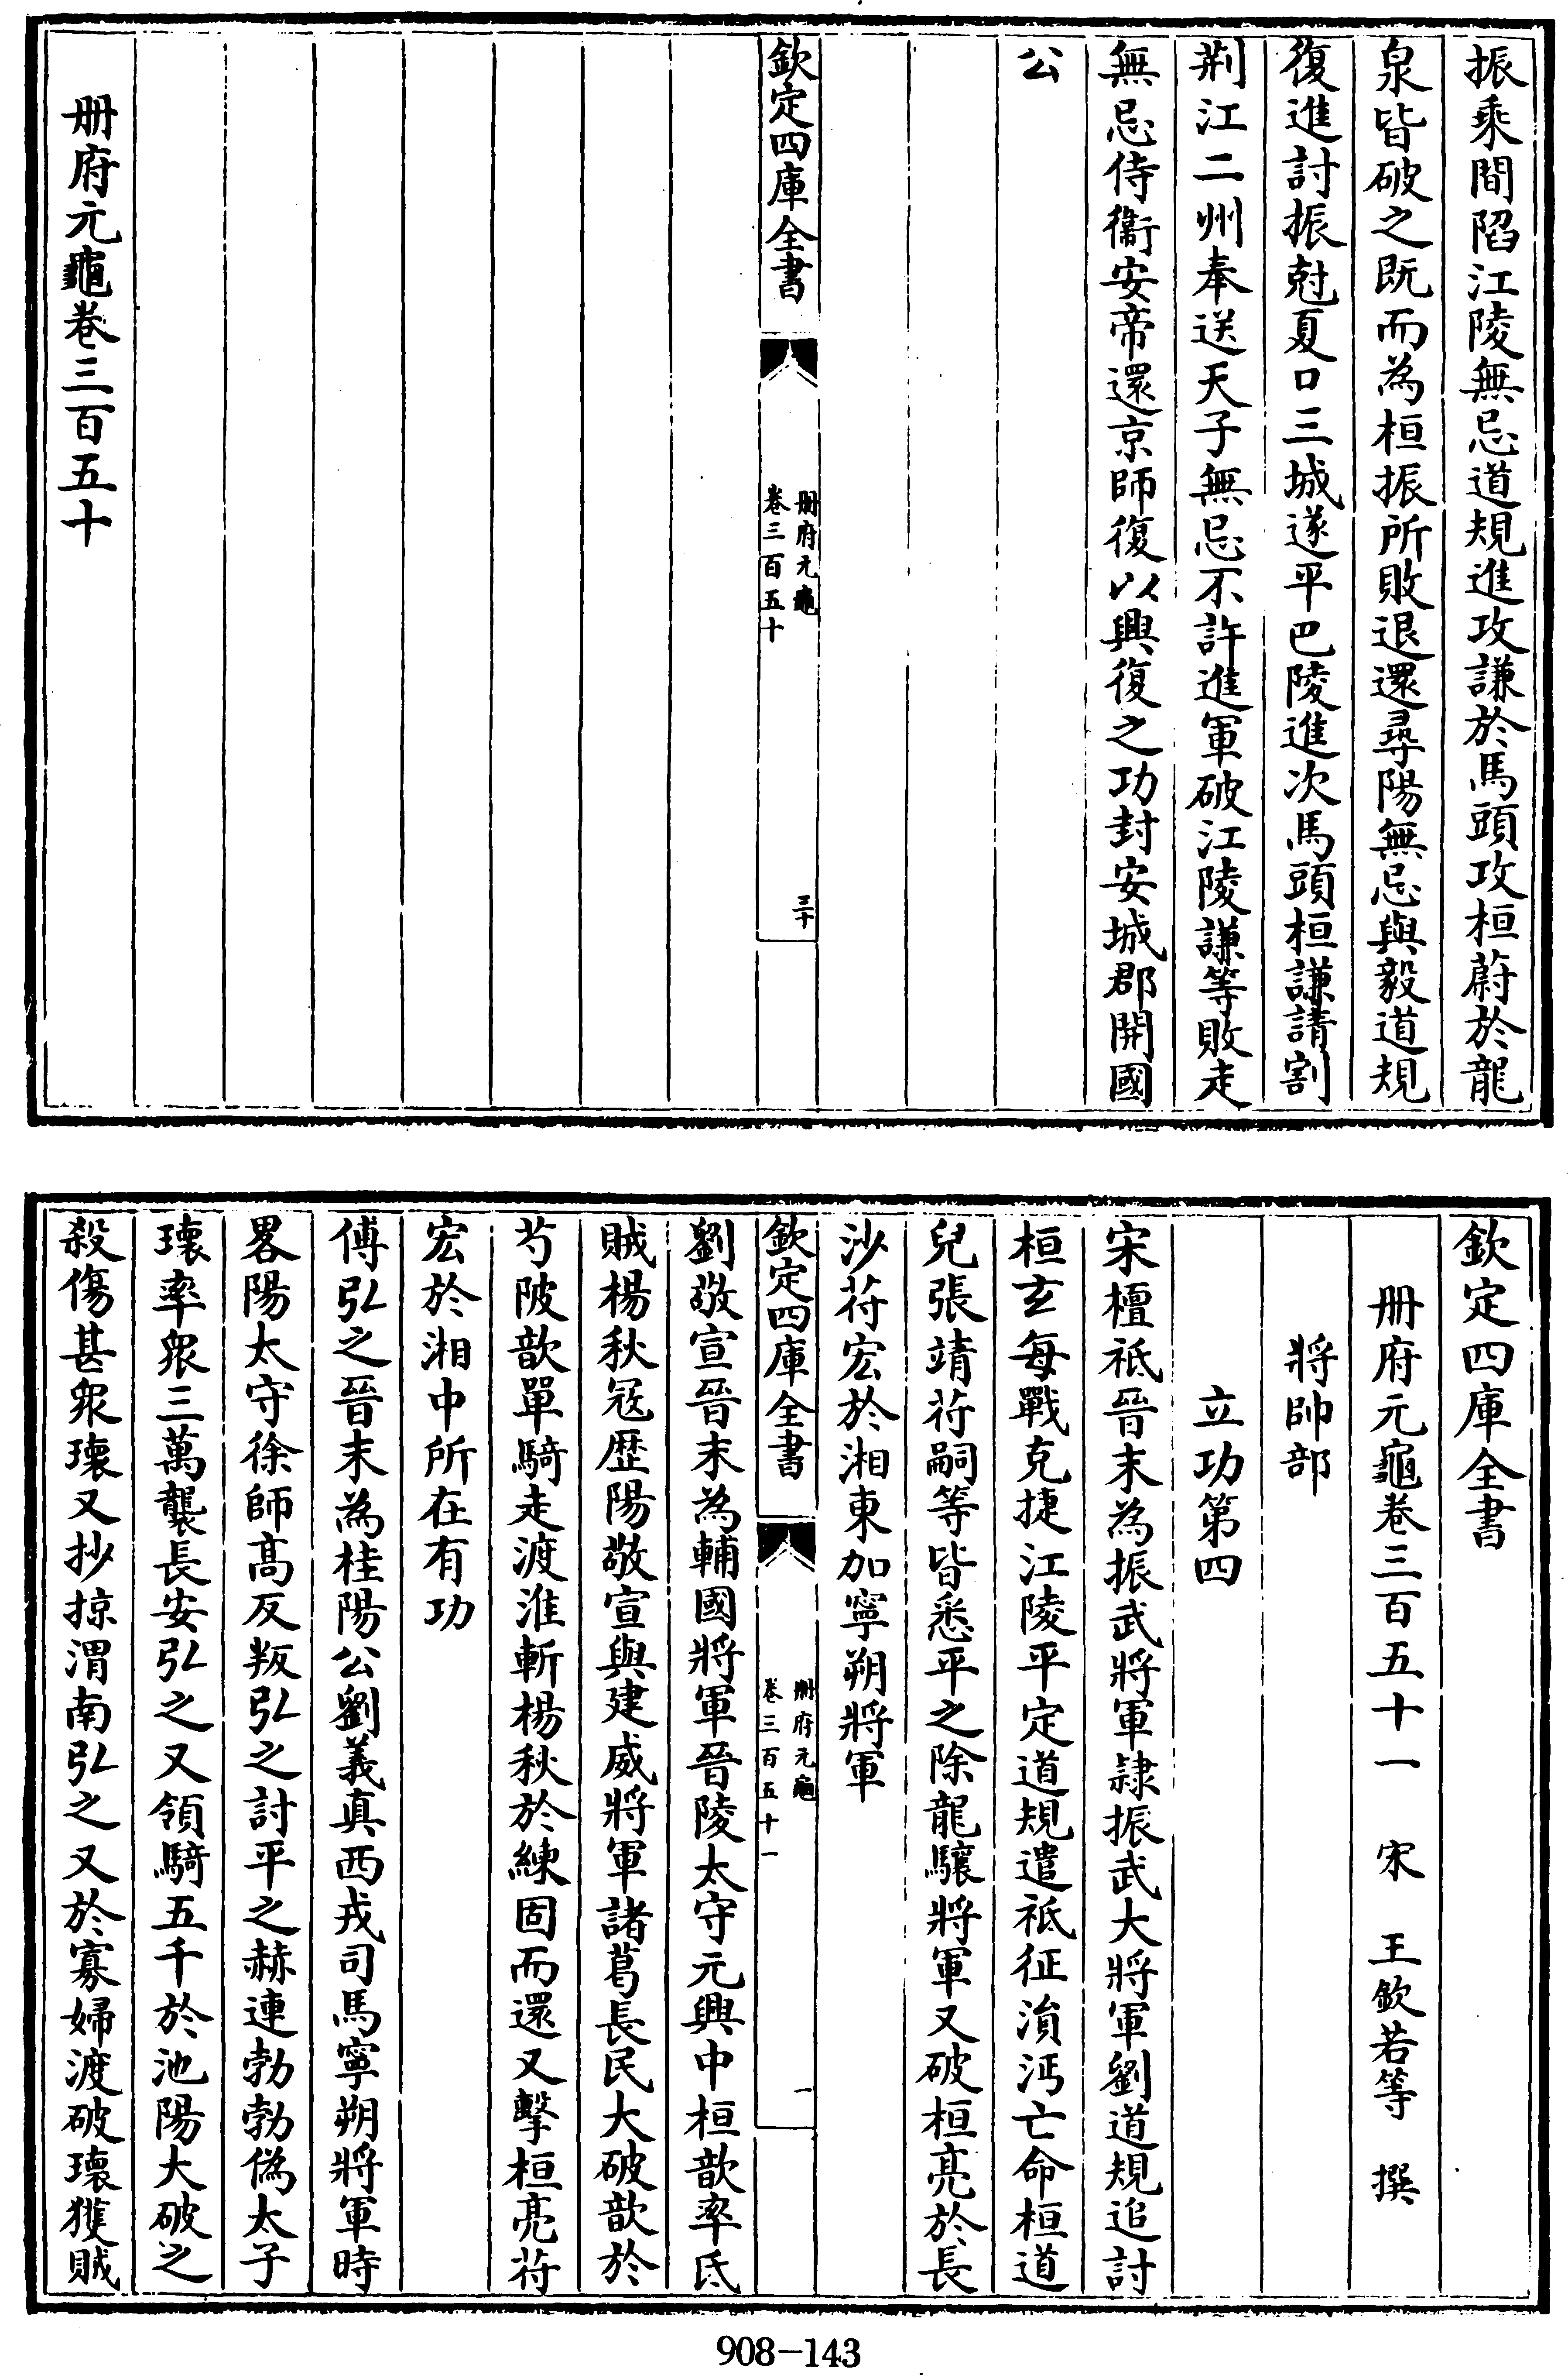 振乘間陷江陵無忌道規進攻謙於馬頭攻桓蔚於龍
泉皆破之既而為桓振所敗退還尋陽無忌與毅道規
復進討振尅夏口三城遂平巴陵進次馬頭桓謙請割
荆江二州奉送天子無忌不許進軍破江陵謙等敗走
無忌侍衞安帝還京師復以興復之功封安城郡開國
公
欽定四庫全書
册府元龜
卷三百五十
三十
册府元龜卷三百五十
欽定四庫全書
册府元龜卷三百五十一 宋 王欽若等 撰
將帥部
立功第四
宋檀祗晉末為振武將軍隷振武大將軍劉道規追討
桓玄每戰克捷江陵平定道規遣祗征溳沔亡命桓道
兒張靖苻嗣等皆悉平之除龍驤將軍又破桓亮於長
沙苻宏於湘東加寧朔將軍
欽定四庫全書
册府元龜
卷三百五十一
一
劉敬宣晉末為輔國將軍晉陵太守元興中桓歆率氐
賊楊秋冦歷陽敬宣與建威將軍諸葛長民大破歆於
芍陂歆單騎走渡淮斬楊秋於練固而還又擊桓亮苻
宏於湘中所在有功
傅弘之晉末為桂陽公劉義真西戎司馬寧朔將軍時
畧陽太守徐師高反叛弘之討平之赫連勃勃偽太子
瓌率衆三萬襲長安弘之又領騎五千於池陽大破之
殺傷甚衆瓌又抄掠渭南弘之又於寡婦渡破瓌獲賊
908-143